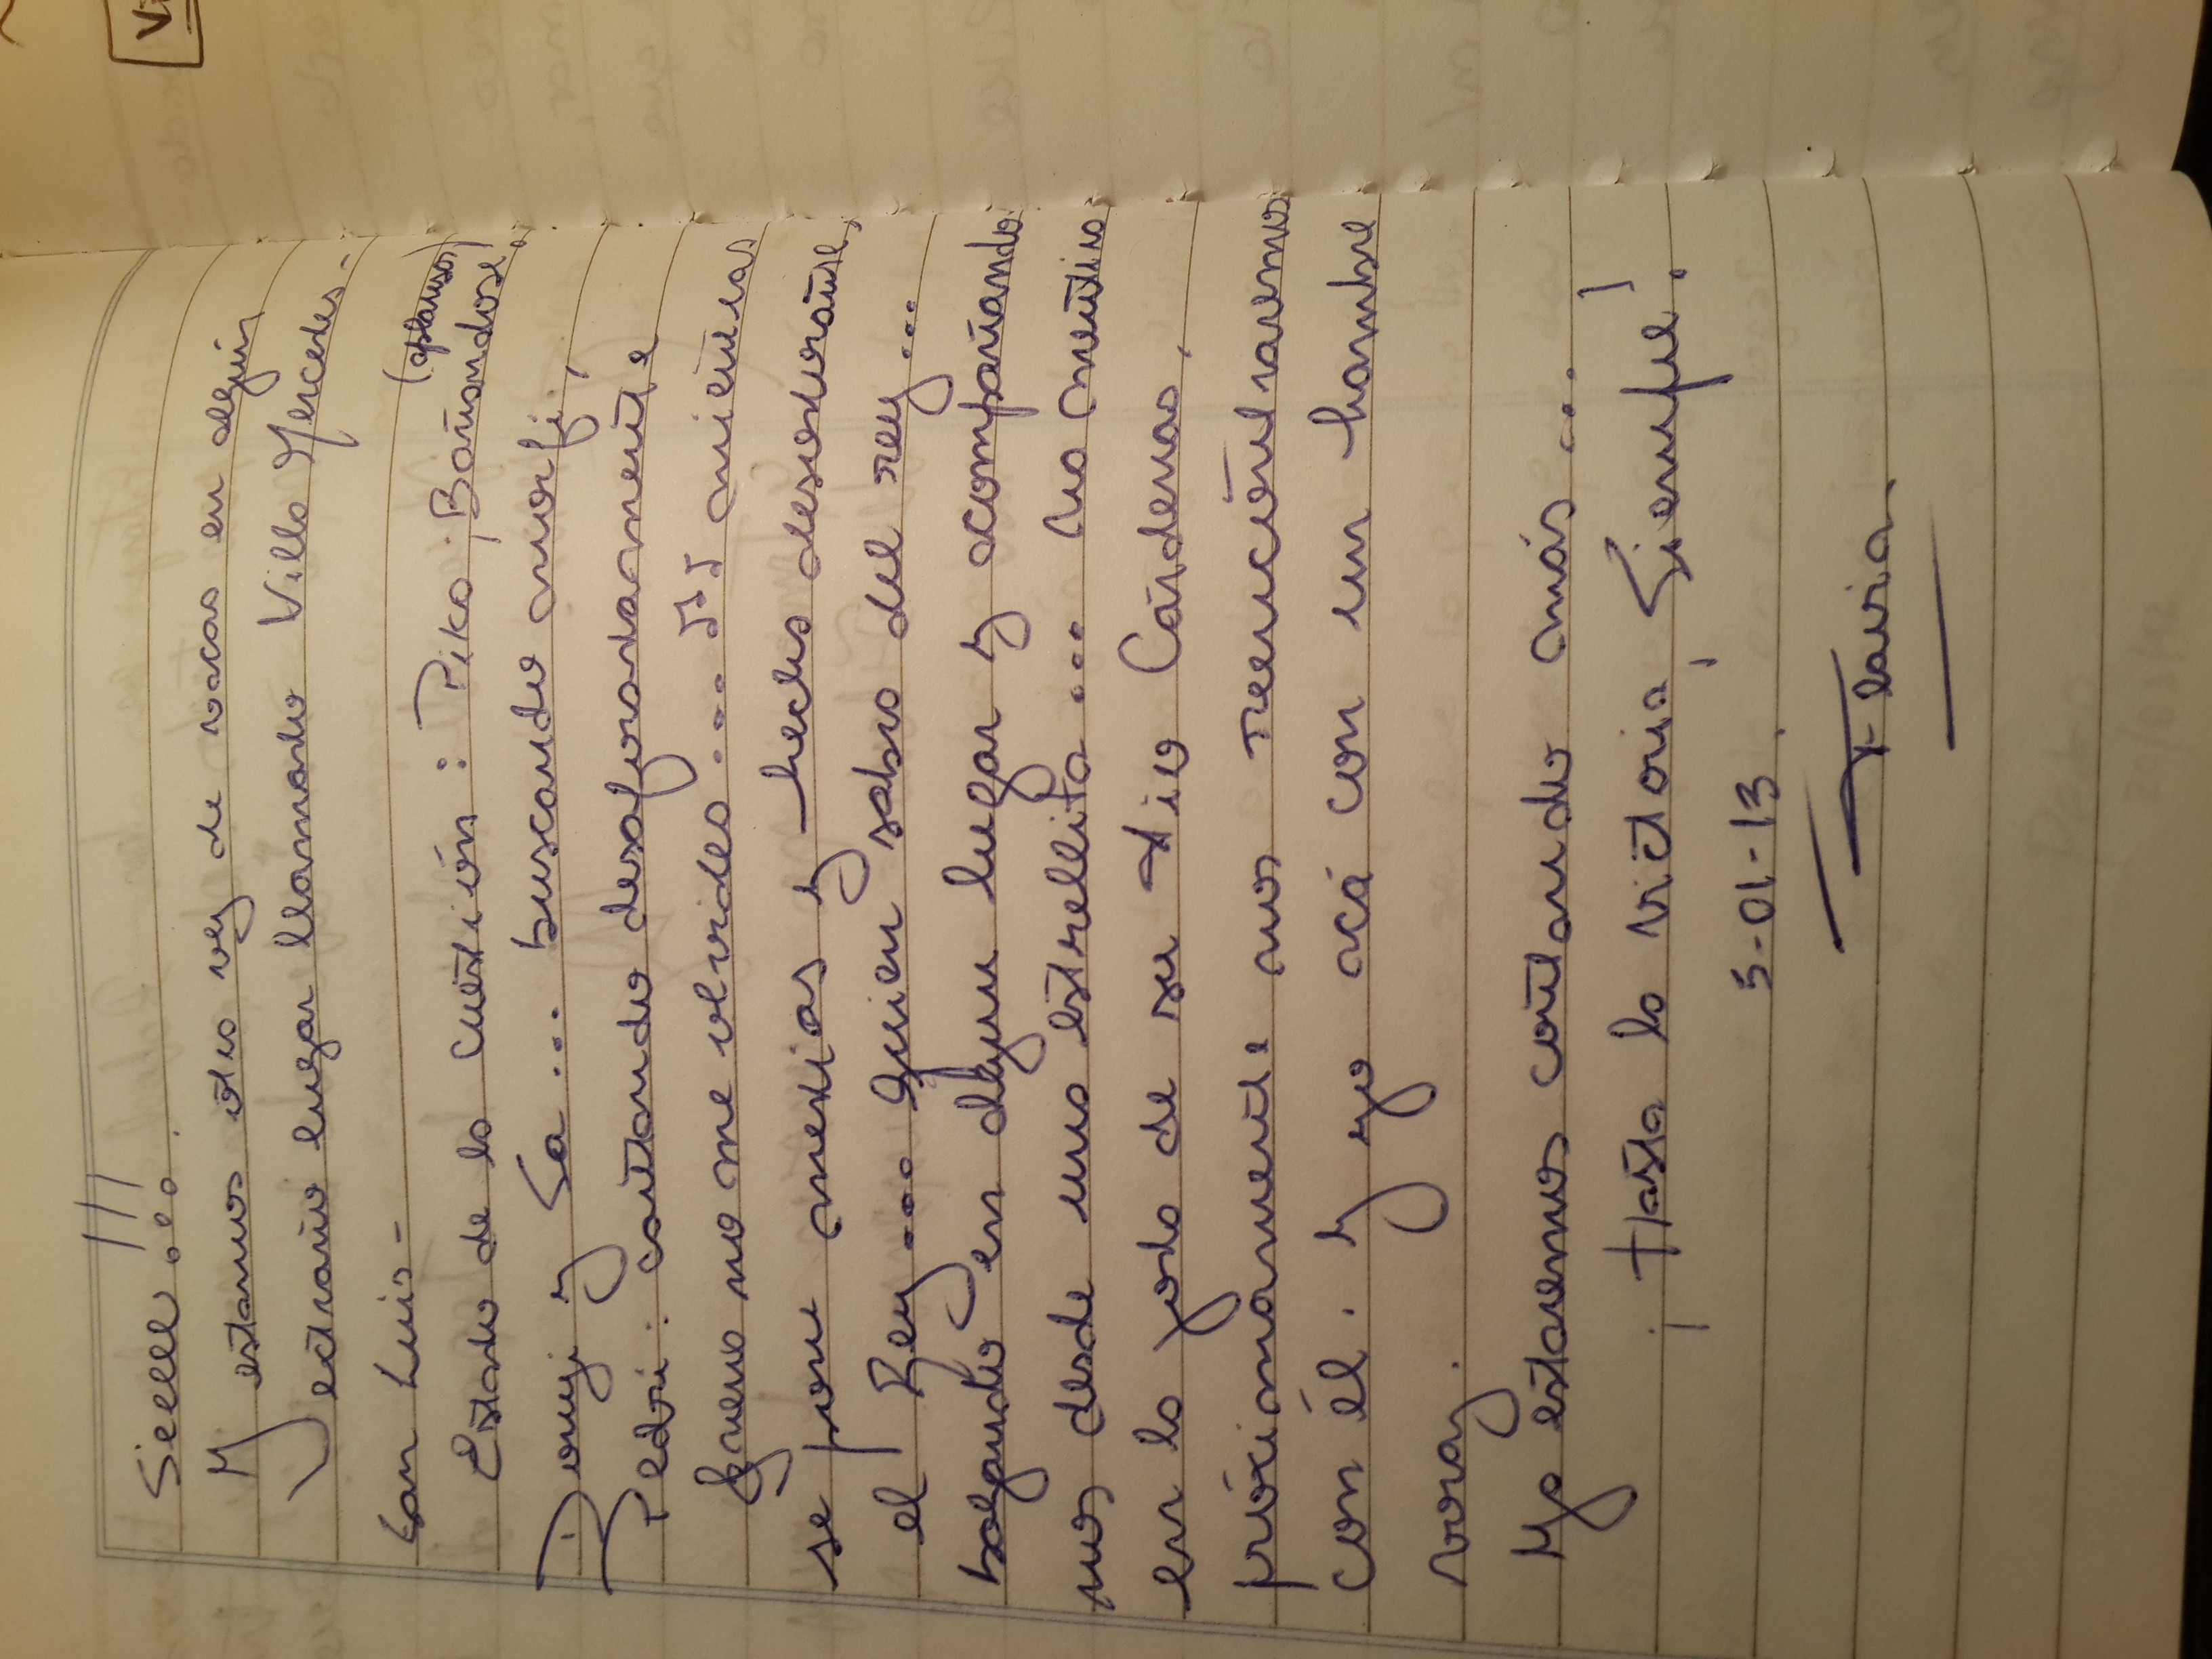 Seeeee!!!.
Y estamos otra vez de vacas en algún
extraño lugar llamado Villa Mercedes-
San Luis-
Estado de la cuestión: Pika; Bañandose! (aplausos)
y Sa... buscando morfi,
Pedri: cantando desaforadamente
no me olvides... mientras
se pone medias y hecha desodorante,
el Rey... quien sabra del rey...
bagando en algun lugar y acompañando
nos desde una estrellita... No mentira
en la joda de su tio Cárdenas,
próximamente nos reencontraremos
con él. Y yo acá con un hambre
voraz.
Ya estaremos contando más...
¡Hasta la victoria, Siempre!
5-01-13.
Flavia.